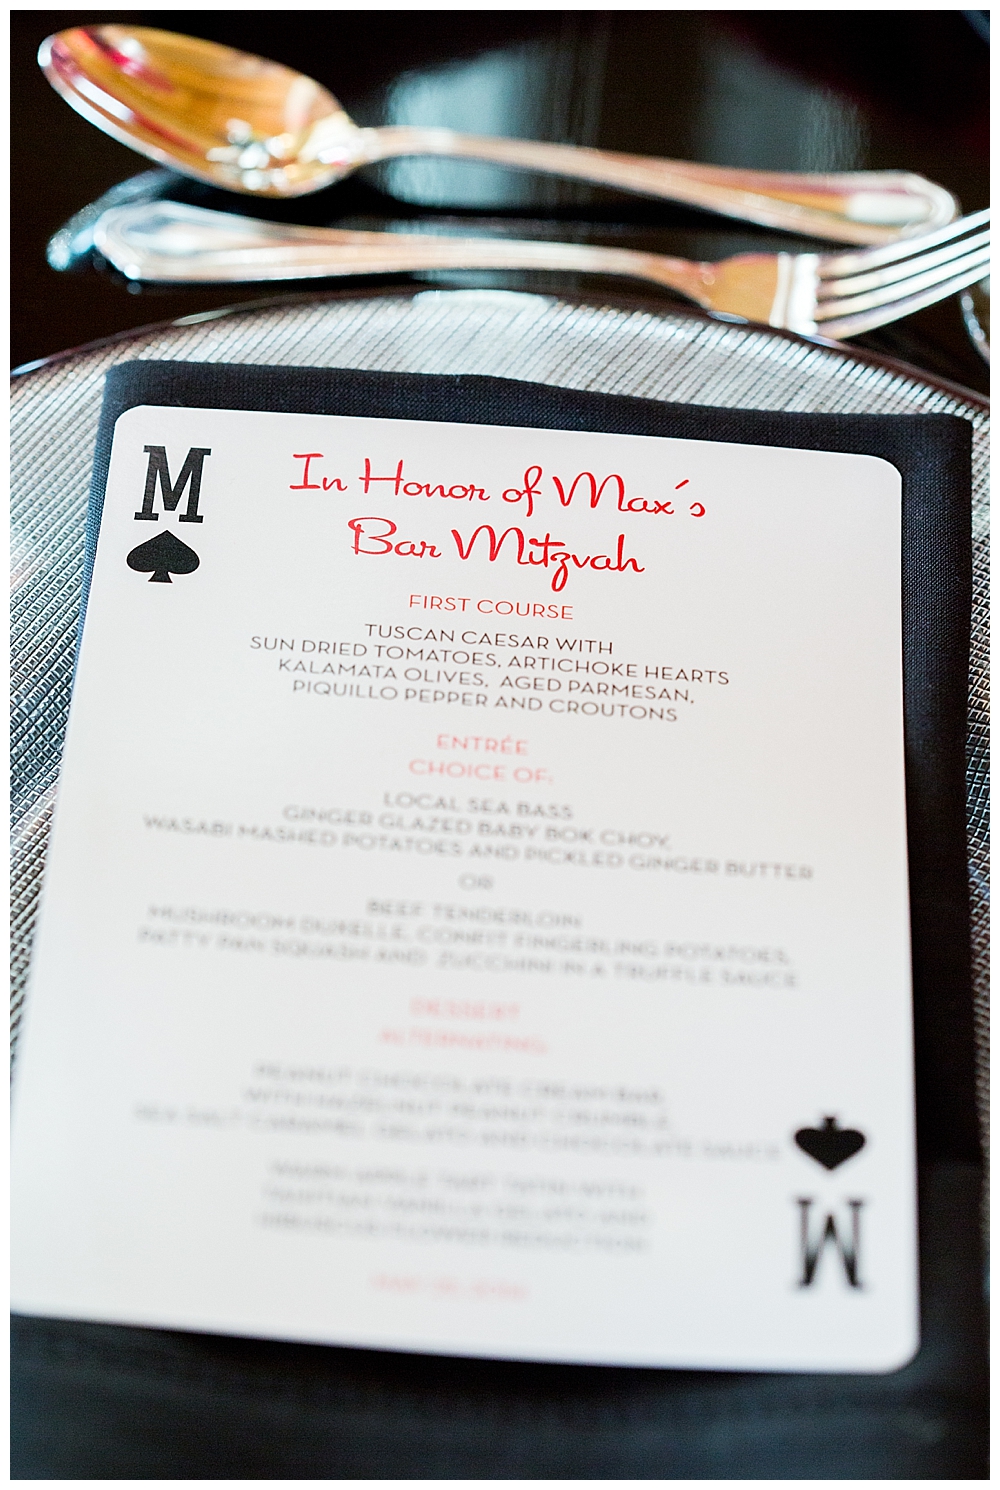 M
In Honor of Max's
Bar Mitzvah
FIRST COURSE
TUSCAN CAESAR WITH
SUN DRIED TOMATOES, ARTICHOKE HEARTS
KALAMATA OLIVES, AGED PARMESAN,
PIQUILLO PEPPER AND CROUTONS
ENTRÉE
CHOICE OF:
LOCAL SEA BASS
GINGER GLAZED BABY BOK CHOY,
WASABI MASHED POTATOES AND PICKLED GINGER BUTTER
OR
BEEF TENDERLOIN
MUSHROOM DUXELLE, CONFIT FINGERLING POTATOES,
PATTY PAN SQUASH AND ZUCCHINI IN A TRUFFLE SAUCE
DESSERT
ALTERNATING:
PEANUT CHOCOLATE CREAM BAR
WITH HAZELNUT PEANUT CRUMBLE,
SEA SALT CARAMEL GELATO AND CHOCOLATE SAUCE
M